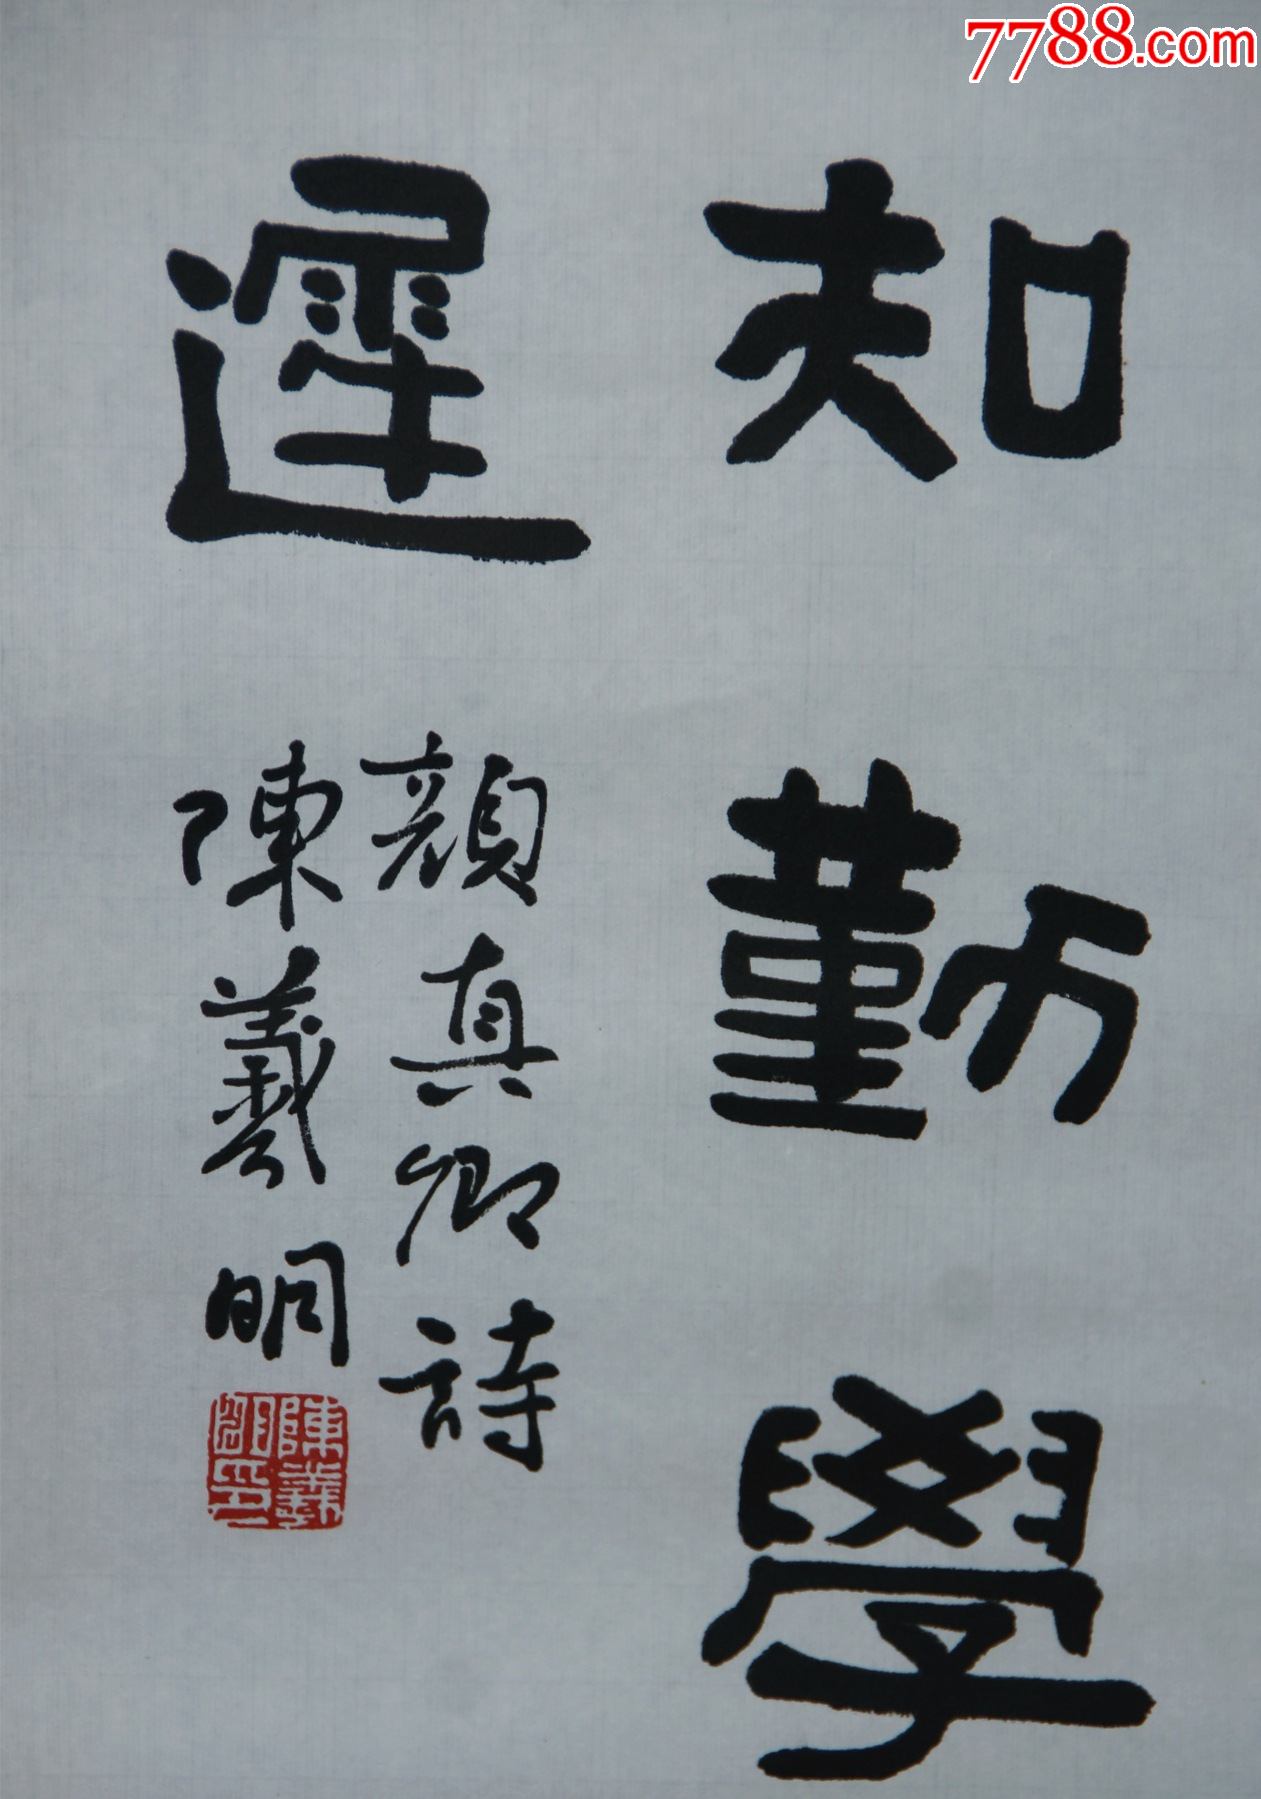 7788.com
知勤學
遲
顏真卿詩
陳羲明
陳羲明印